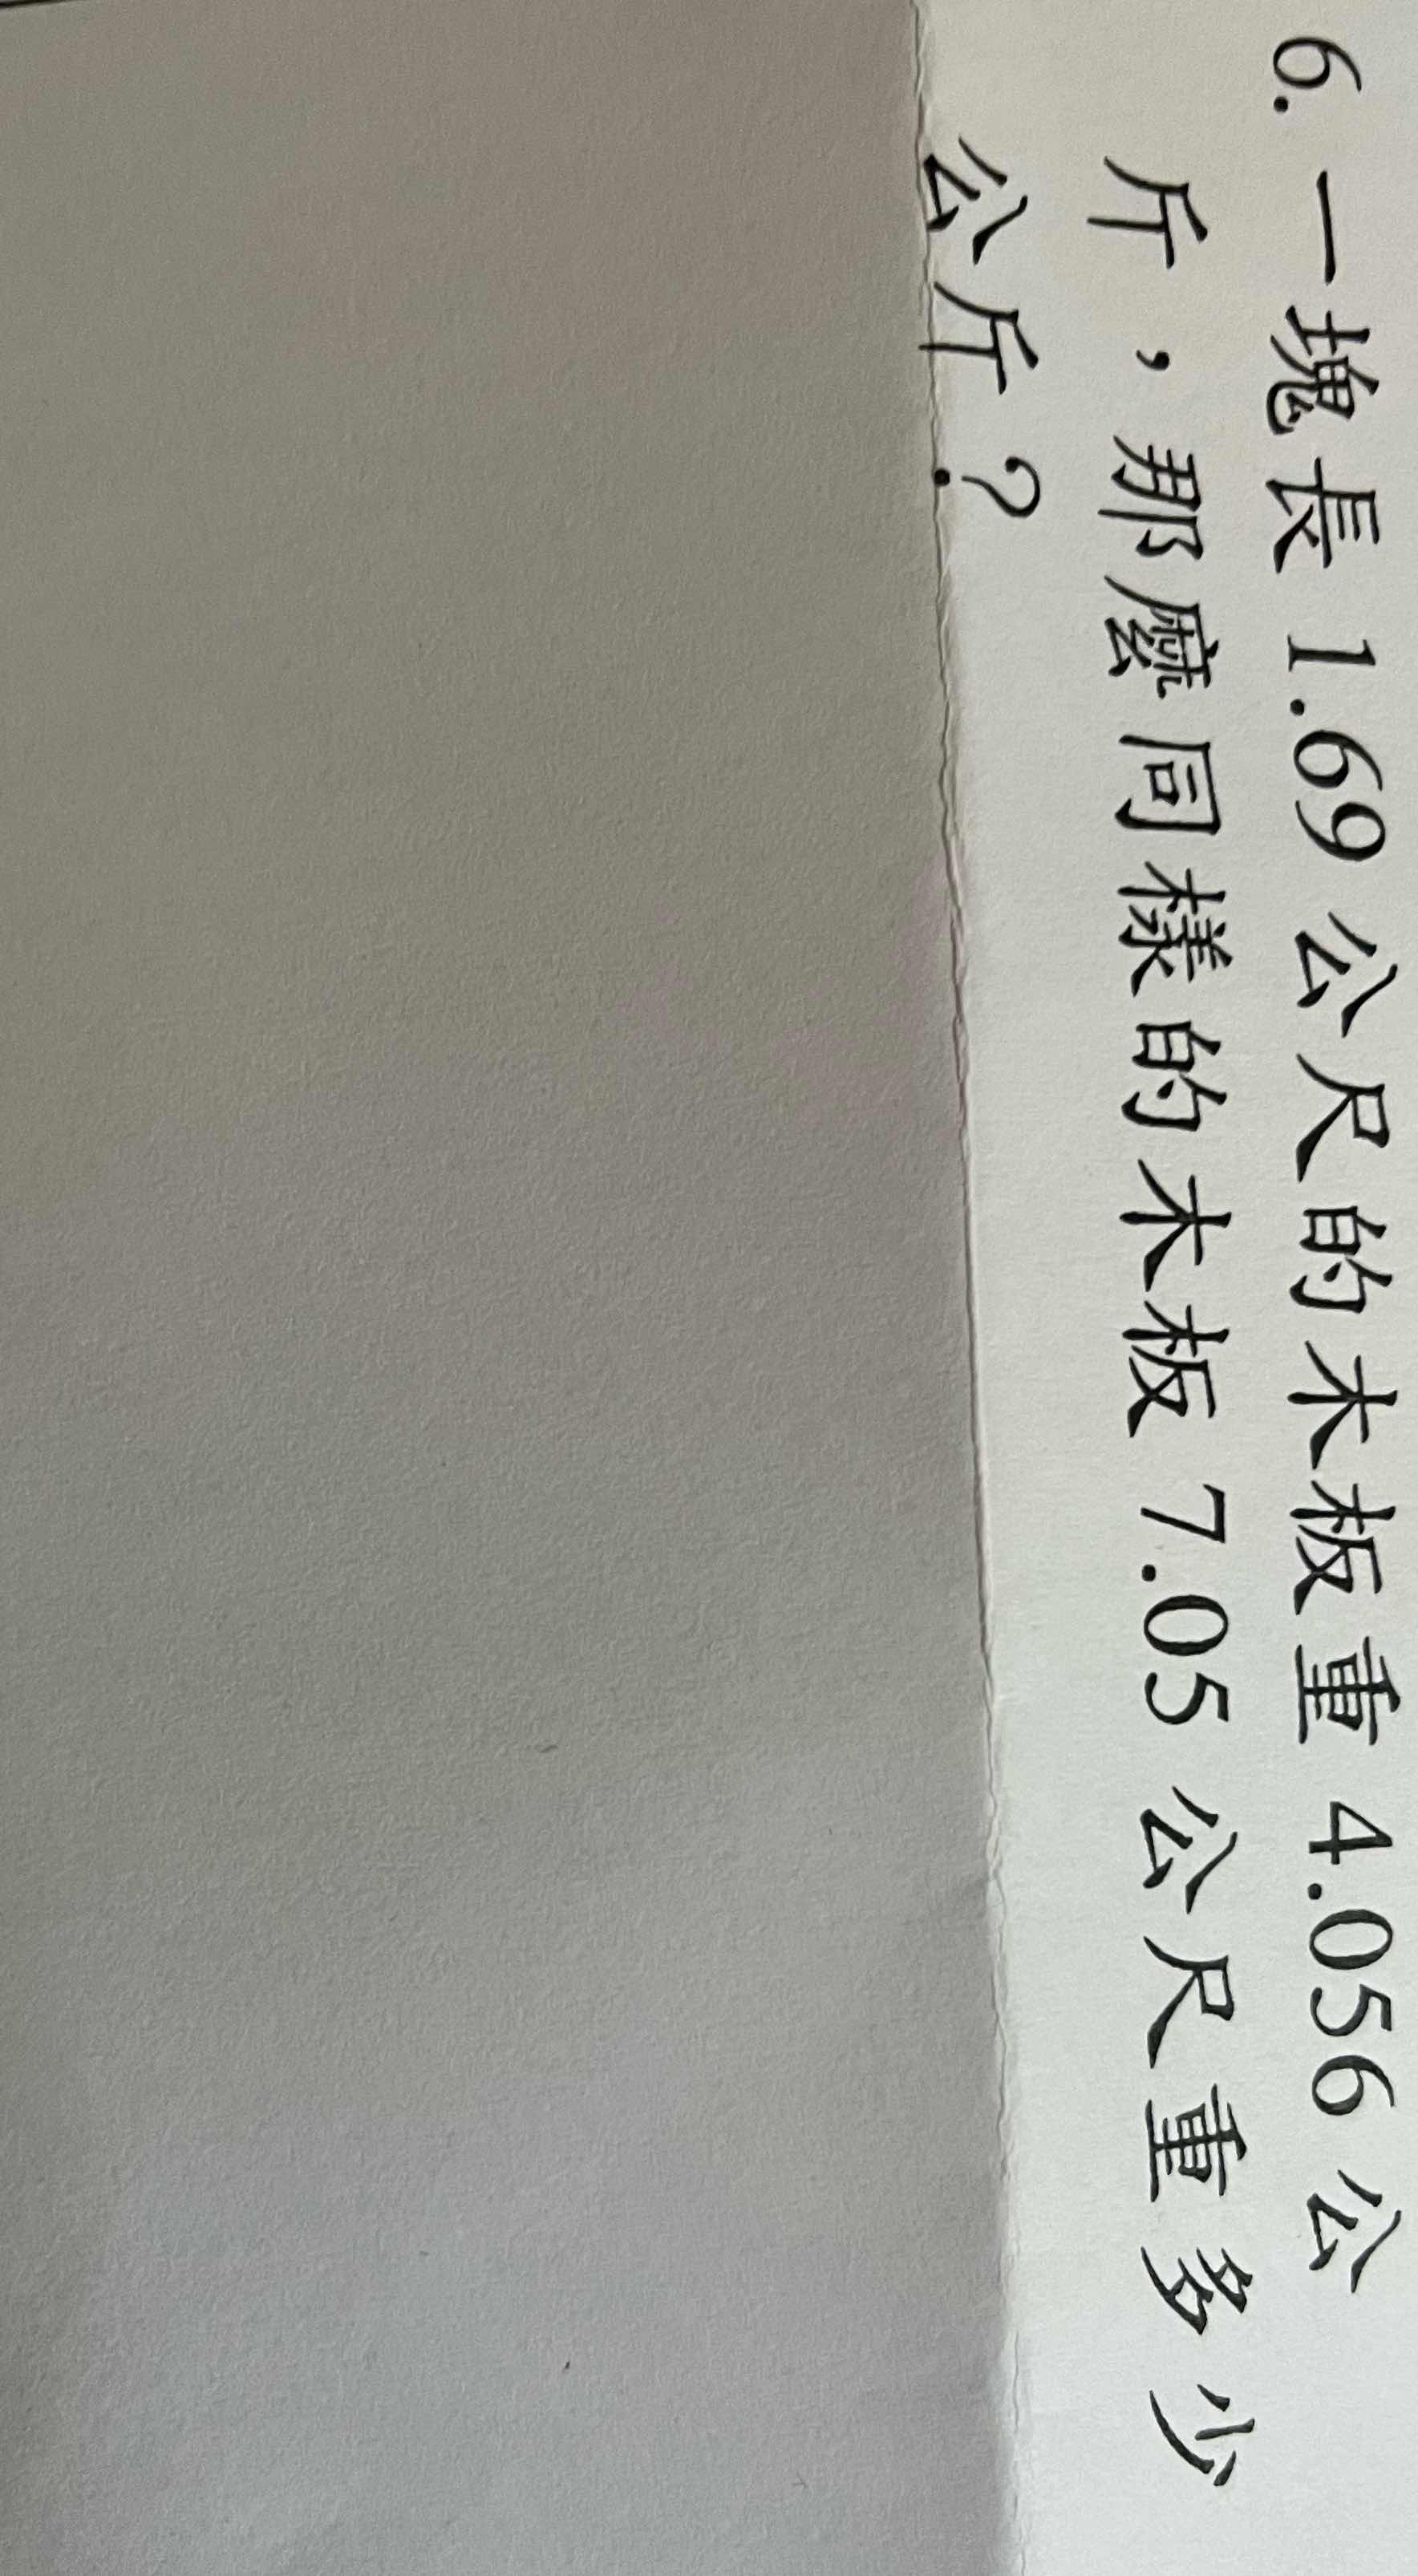 6. 一塊長 1.69 公尺的木板重 4.056 公
斤，那麼同樣的木板 7.05 公尺重多少
公斤？